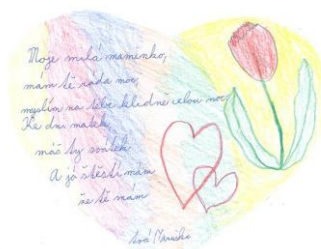 Moje milá maminko,
mám tě ráda moc,
myslím na tebe klidně celou noc.
Ke dni matek
máš ty svátek
A já štěstí mám
že tě mám
tvá